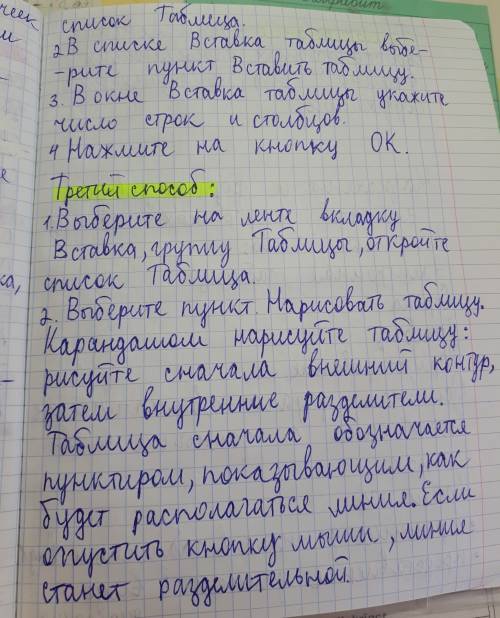 список Таблица.
2 В списке Вставка таблицы выбе-
-рите пункт Вставить таблицу.
3. В окне Вставка таблицы укажите
число строк и столбцов.
4 Нажмите на кнопку ОК.
Третий способ:
1. Выберите на ленте вкладку
Вставка, группу Таблицы, откройте
список Таблица.
2. Выберите пункт Нарисовать таблицу.
Карандашом нарисуйте таблицу:
рисуйте сначала внешний контур,
затем внутренние разделители.
Таблица сначала обозначается
пунктиром, показывающим, как
будет располагаться линия. Если
опустить кнопку мыши, линия
станет разделительной.